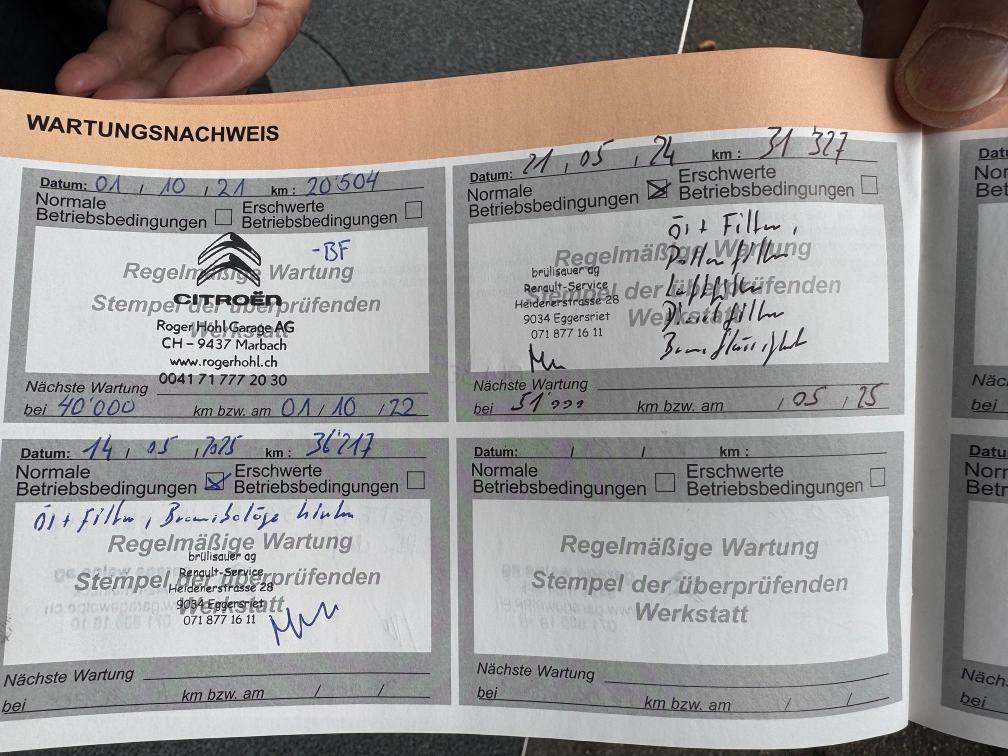 WARTUNGSNACHWEIS
Datum: 01 / 10 / 21 km: 20'504
Normale
Betriebsbedingungen
Erschwerte
Betriebsbedingungen
-BF
Regelmäßige Wartung
Stempel der überprüfenden
Werkstatt
CITROËN
Roger Höhl Garage AG
CH – 9437 Marbach
www.rogerhohl.ch
0041 71 777 20 30
Nächste Wartung
bei 40'000 km bzw. am 01 / 10 / 22
Datum: 21 . 05 . 24 km : 31'327
Normale
Betriebsbedingungen
Erschwerte
Betriebsbedingungen
Öl + Filter,
Pollenfilter
Luftfilter
Dieselfilter
Bremsflüssigkeit
Regelmäßige Wartung
Stempel der überprüfenden
Werkstatt
brülisauer ag
Renault-Service
Heidenerstrasse 28
9034 Eggersriet
071 877 16 11
Nächste Wartung
bei 51'000 km bzw. am / 05 / 25
Datum: 14 / 05 / 2025 km : 36'217
Normale
Betriebsbedingungen
Erschwerte
Betriebsbedingungen
Öl + Filter, Bremsbeläge hinten
Regelmäßige Wartung
Stempel der überprüfenden
Werkstatt
brülisauer ag
Renault-Service
Heidenerstrasse 28
9034 Eggersriet
071 877 16 11
Nächste Wartung
bei km bzw. am / /
Datum: / / km :
Normale
Betriebsbedingungen
Erschwerte
Betriebsbedingungen
Regelmäßige Wartung
Stempel der überprüfenden
Werkstatt
Nächste Wartung
bei km bzw. am / /